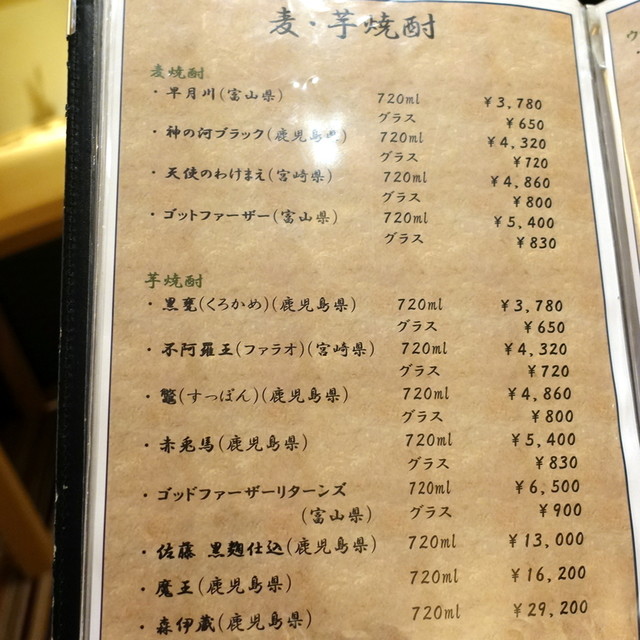 麦・芋焼酎
麦焼酎
・早月川(富山県) 720ml ¥3,780
グラス ¥650
・神の河ブラック(鹿児島県) 720ml ¥4,320
グラス ¥720
・天使のわけまえ(宮崎県) 720ml ¥4,860
グラス ¥800
・ゴットファーザー(富山県) 720ml ¥5,400
グラス ¥830
芋焼酎
・黒甕(くろかめ)(鹿児島県) 720ml ¥3,780
グラス ¥650
・不阿羅王(ファラオ)(宮崎県) 720ml ¥4,320
グラス ¥720
・鼈(すっぽん)(鹿児島県) 720ml ¥4,860
グラス ¥800
・赤兎馬(鹿児島県) 720ml ¥5,400
グラス ¥830
・ゴッドファーザーリターンズ 720ml ¥6,500
(富山県) グラス ¥900
・佐藤 黒麹仕込(鹿児島県) 720ml ¥13,000
・魔王(鹿児島県) 720ml ¥16,200
・森伊蔵(鹿児島県) 720ml ¥29,200